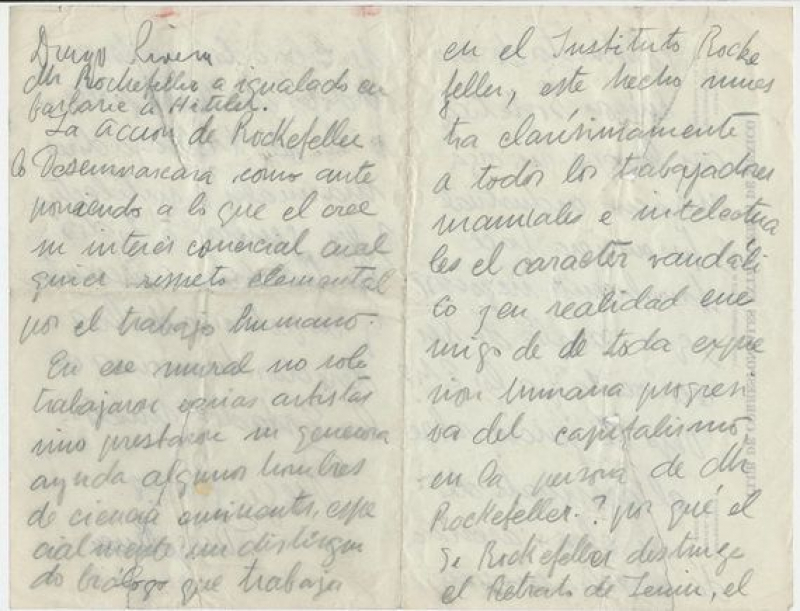 Diego Rivera
Mr Rockefeller a igualado en
barbarie a Hitler.
La accion de Rockefeller
lo Desenmascara como ante
poniendo a lo que el cree
su interés comercial cual
quier respeto elemental
por el trabajo humano.
En ese mural no solo
trabajaron varios artistas
sino prestaron su generosa
ayuda algunos hombres
de ciencia eminentes, espe
cialmente un distingui
do biólogo que trabaja
en el Instituto Rocke
feller, este hecho mues
tra clarísimamente
a todos los trabajadores
manuales e intelectua
les el caracter vandáli
co y en realidad ene
migo de de toda expre
sion humana progresi
va del capitalismo
en la persona de Mr
Rockefeller. ? por qué el
Sr Rockefeller destruye
el Retrato de Lenin, el